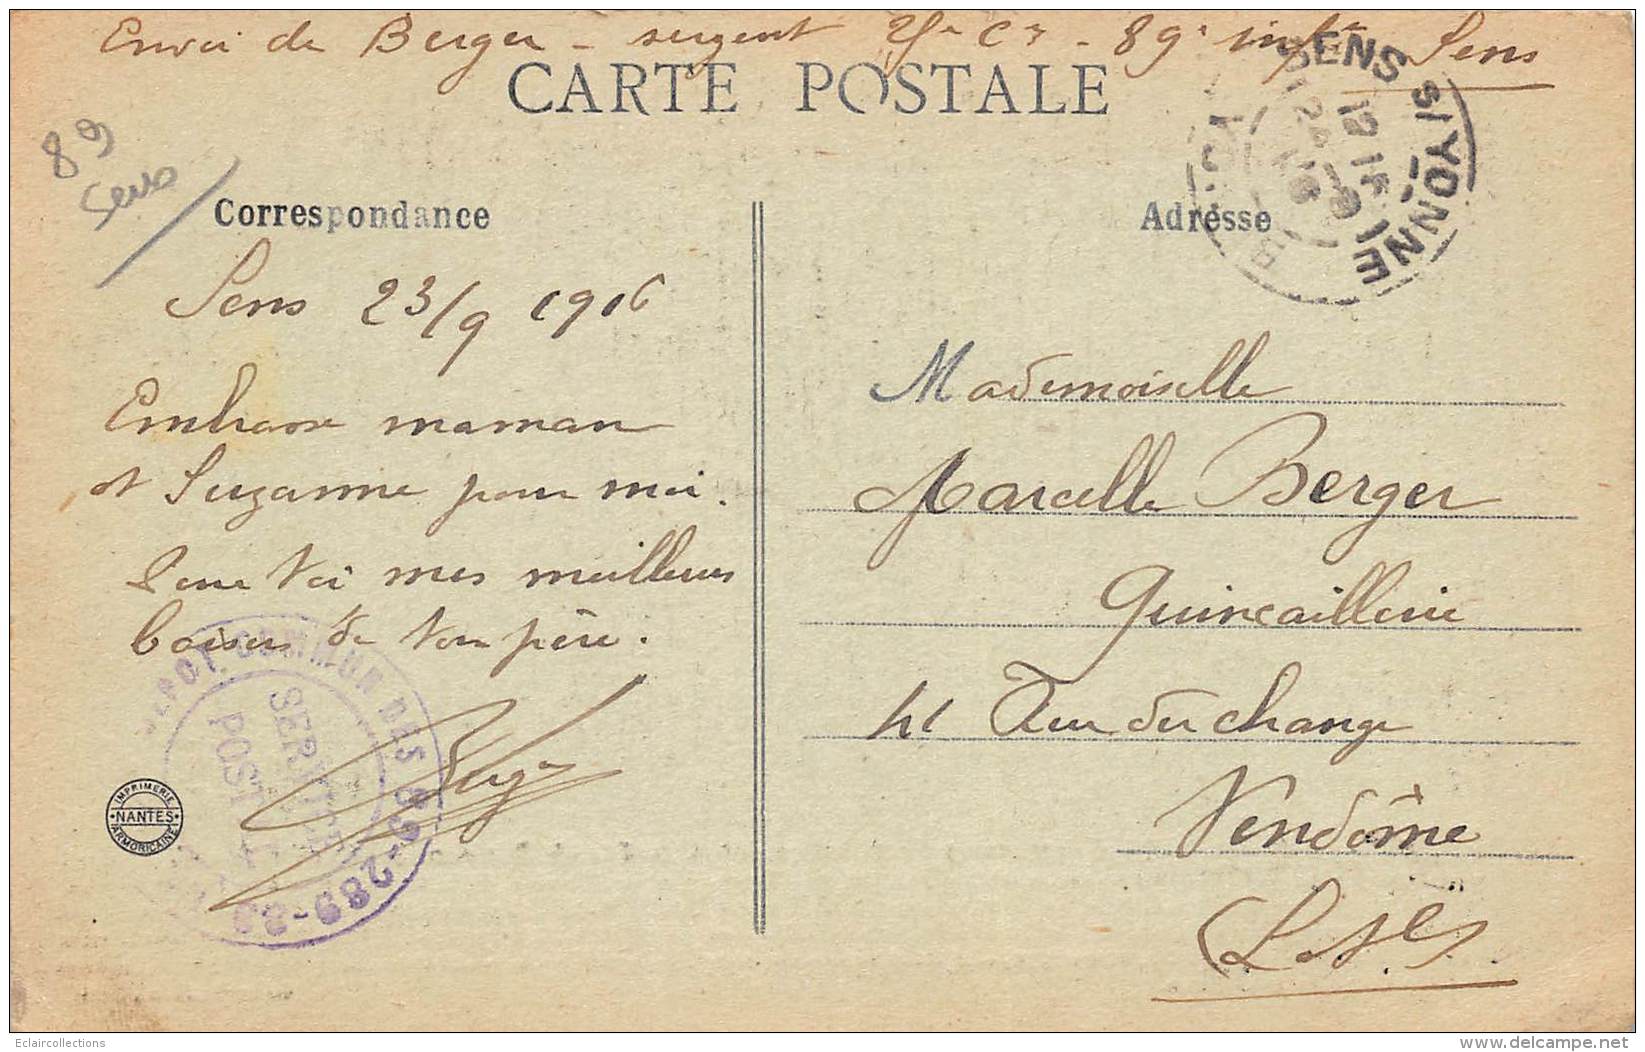 Envoi de Berger - sergent Cie - 89e infie Sens
CARTE POSTALE
89
Sens
SENS S/ YONNE
Correspondance
Adresse
Sens 23/9 1916
Embrasse maman
et Suzanne pour moi.
Pour toi mes meilleurs
baisers de ton père.
Berger
Mademoiselle
Marcelle Berger
Quincaillerie
41 Rue du change
Vendôme
(L. et C.)
DEPOT COMMUN DES 89-289-
SERVICE
POSTAL
IMPRIMERIE
NANTES
ARMORICAINE
Eclaircollections
delcampe.net